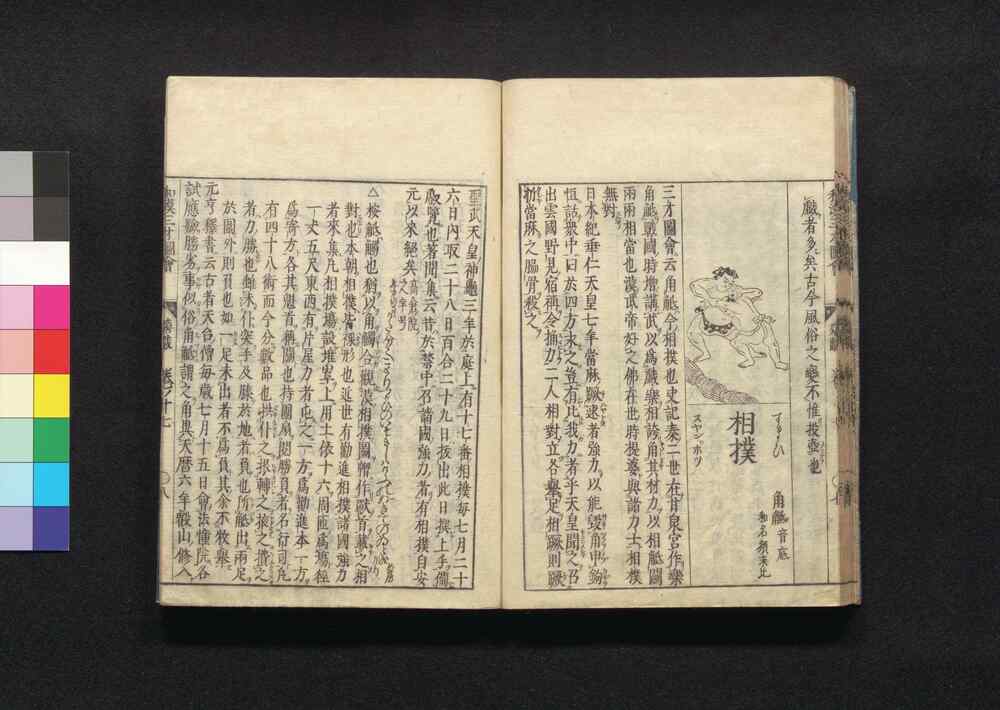 戯者多矣古今風俗之變不惟投壺也
角觝 音底
和名須末比
相撲
すまひ
スヤン ポツ
三才圖會云角觝今相撲也史記秦二世在甘泉宮作樂
角觝戰國時増講武以爲戯樂相誇角其材力以相觝鬭
兩兩相當也漢武帝好之佛在世時提婆與諸力士相撲
無對
日本紀垂仁天皇七年當麻蹶速者強力以能毀角申鉤
恒語衆中曰於四方求之豈有比我力者乎天皇聞之召
出雲國野見宿祢令捔力二人相對立各擧足相蹶則蹶
折當麻之脇骨殺之
聖武天皇神龜三年於庭上有十七番相撲毎七月二十
六日内取二十八日百合二十九日拔出此日撰上手備
叡覽也著聞集云昔於禁中召諸國強力者有相撲自安
元以來絕矣 高倉院之年号
△按觝觸也猶以角觸合觀漢相撲圖
對也本朝相撲皆裸形也近世有勸進相撲諸國強力
者來集凡相撲場設堆埒上用土俵十六周匝爲場徑
一丈五尺東西有片屋力者屯之一方爲勸進本一方
爲寄方各其魁首稱關也持團扇関勝負者名行司凡
有四十八術而今分數品也
者力勝也雖未仆突手及膝於地者負也所觝出兩足
於圈外則負也如一足未出者不爲負其余不枚擧
元亨釋書云古者天台僧毎歳七月十五日會法懂院各
試應驗勝劣事似俗角觝謂之角異天暦六年叡山修入
和漢三才圖會 嬉戲 卷之十七 〇八